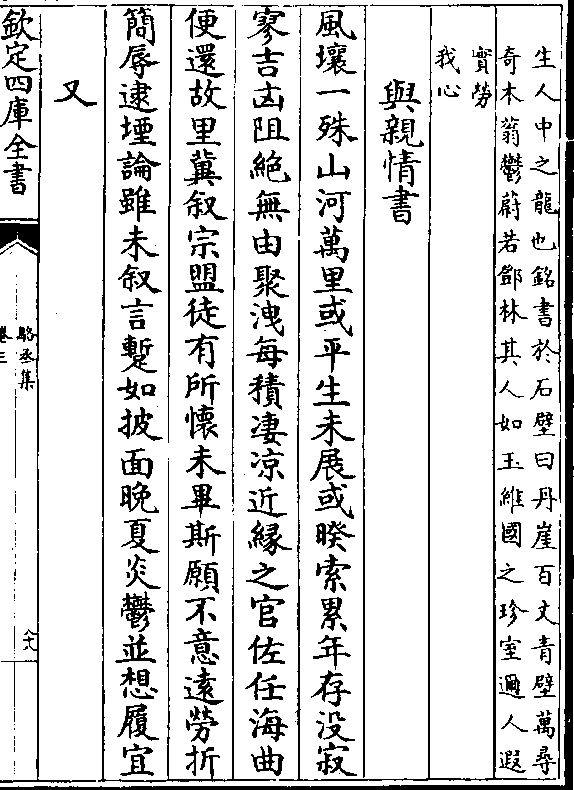 生人中之龍也銘書於石壁曰丹崖百丈青壁萬尋
奇木蓊鬱蔚若鄧林其人如玉維國之珍室邇人遐
實勞
我心
與親情書
風壤一殊山河萬里或平生未展或暌索累年存没寂
寥吉凶阻絶無由聚洩每積凄凉近縁之官佐任海曲
便還故里冀叙宗盟徒有所懷未畢斯願不意遠勞折
簡辱逮堙論雖未叙言蹔如披面晩夏炎鬱並想履宜
又
欽定四庫全書
駱丞集
卷三